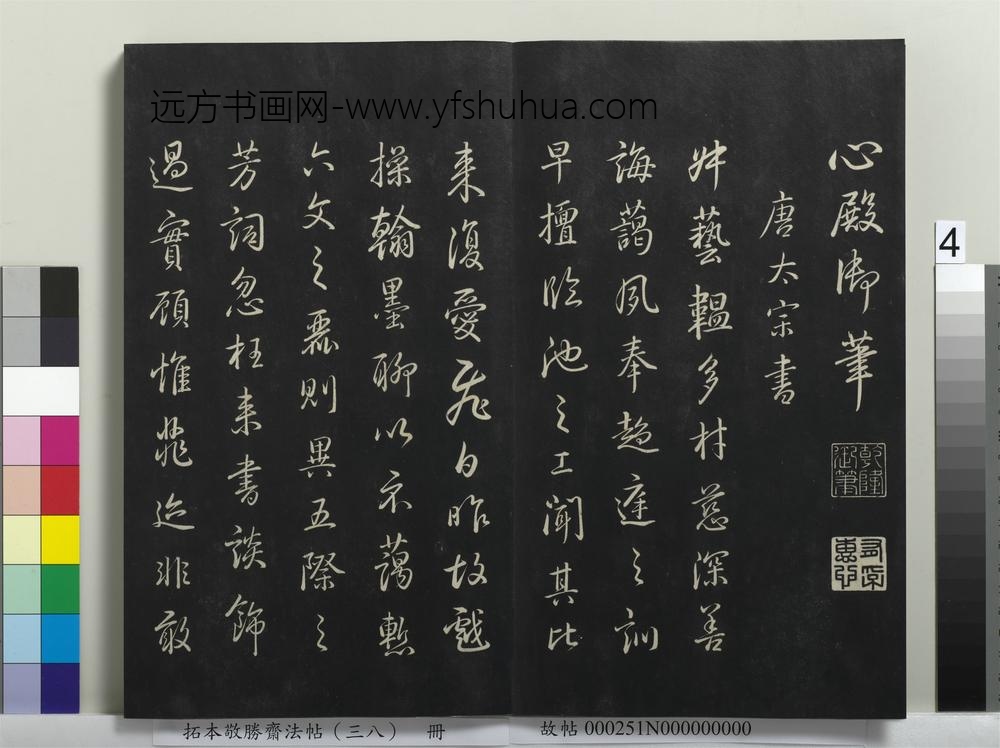 远方书画网-www.yfshuhua.com
心殿御筆
唐太宗書
乾隆御筆
艸藝韞多材慈深善
誨藹夙奉趍庭之訓
早擅臨池之工聞其比
来復愛飛白昨故戲
操翰墨聊以示藹慙
六文之麗則異五際之
芳詞忽枉来書談飾
過實顧惟菲迹非敢
4
拓本敬勝齋法帖（三八） 冊
故帖 000251N000000000